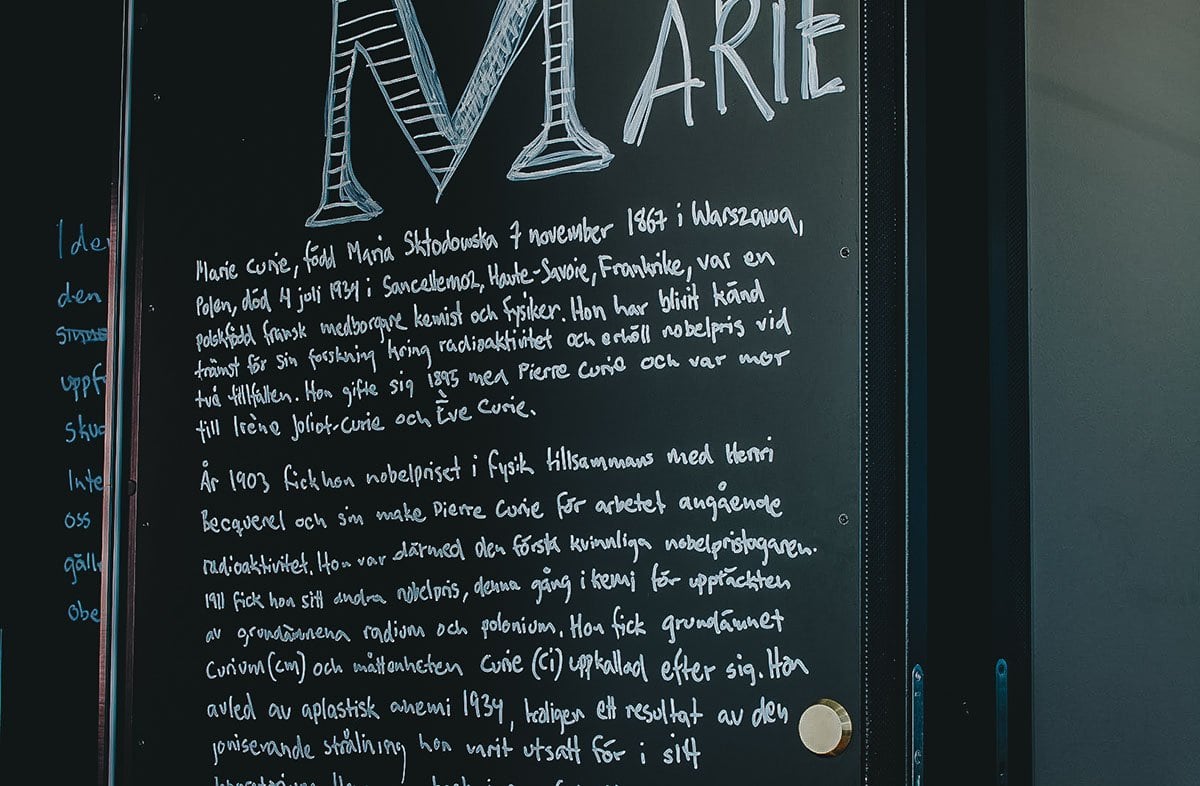 MARIE
Marie Curie, född Maria Skłodowska 7 november 1867 i Warszawa,
Polen, död 4 juli 1934 i Sancellemoz, Haute-Savoie, Frankrike, var en
polskfödd fransk medborgare kemist och fysiker. Hon har blivit känd
främst för sin forskning kring radioaktivitet och erhöll nobelpris vid
två tillfällen. Hon gifte sig 1895 med Pierre Curie och var mor
till Irène Joliot-Curie och Ève Curie.
År 1903 fick hon nobelpriset i fysik tillsammans med Henri
Becquerel och sin make Pierre Curie för arbetet angående
radioaktivitet. Hon var därmed den första kvinnliga nobelpristagaren.
1911 fick hon sitt andra nobelpris, denna gång i kemi för upptäckten
av grundämnena radium och polonium. Hon fick grundämnet
Curium (cm) och måttenheten Curie (Ci) uppkallad efter sig. Hon
avled av aplastisk anemi 1934, troligen ett resultat av den
joniserande strålning hon varit utsatt för i sitt
den
uppf
skud
Inte
oss
gäll
obe